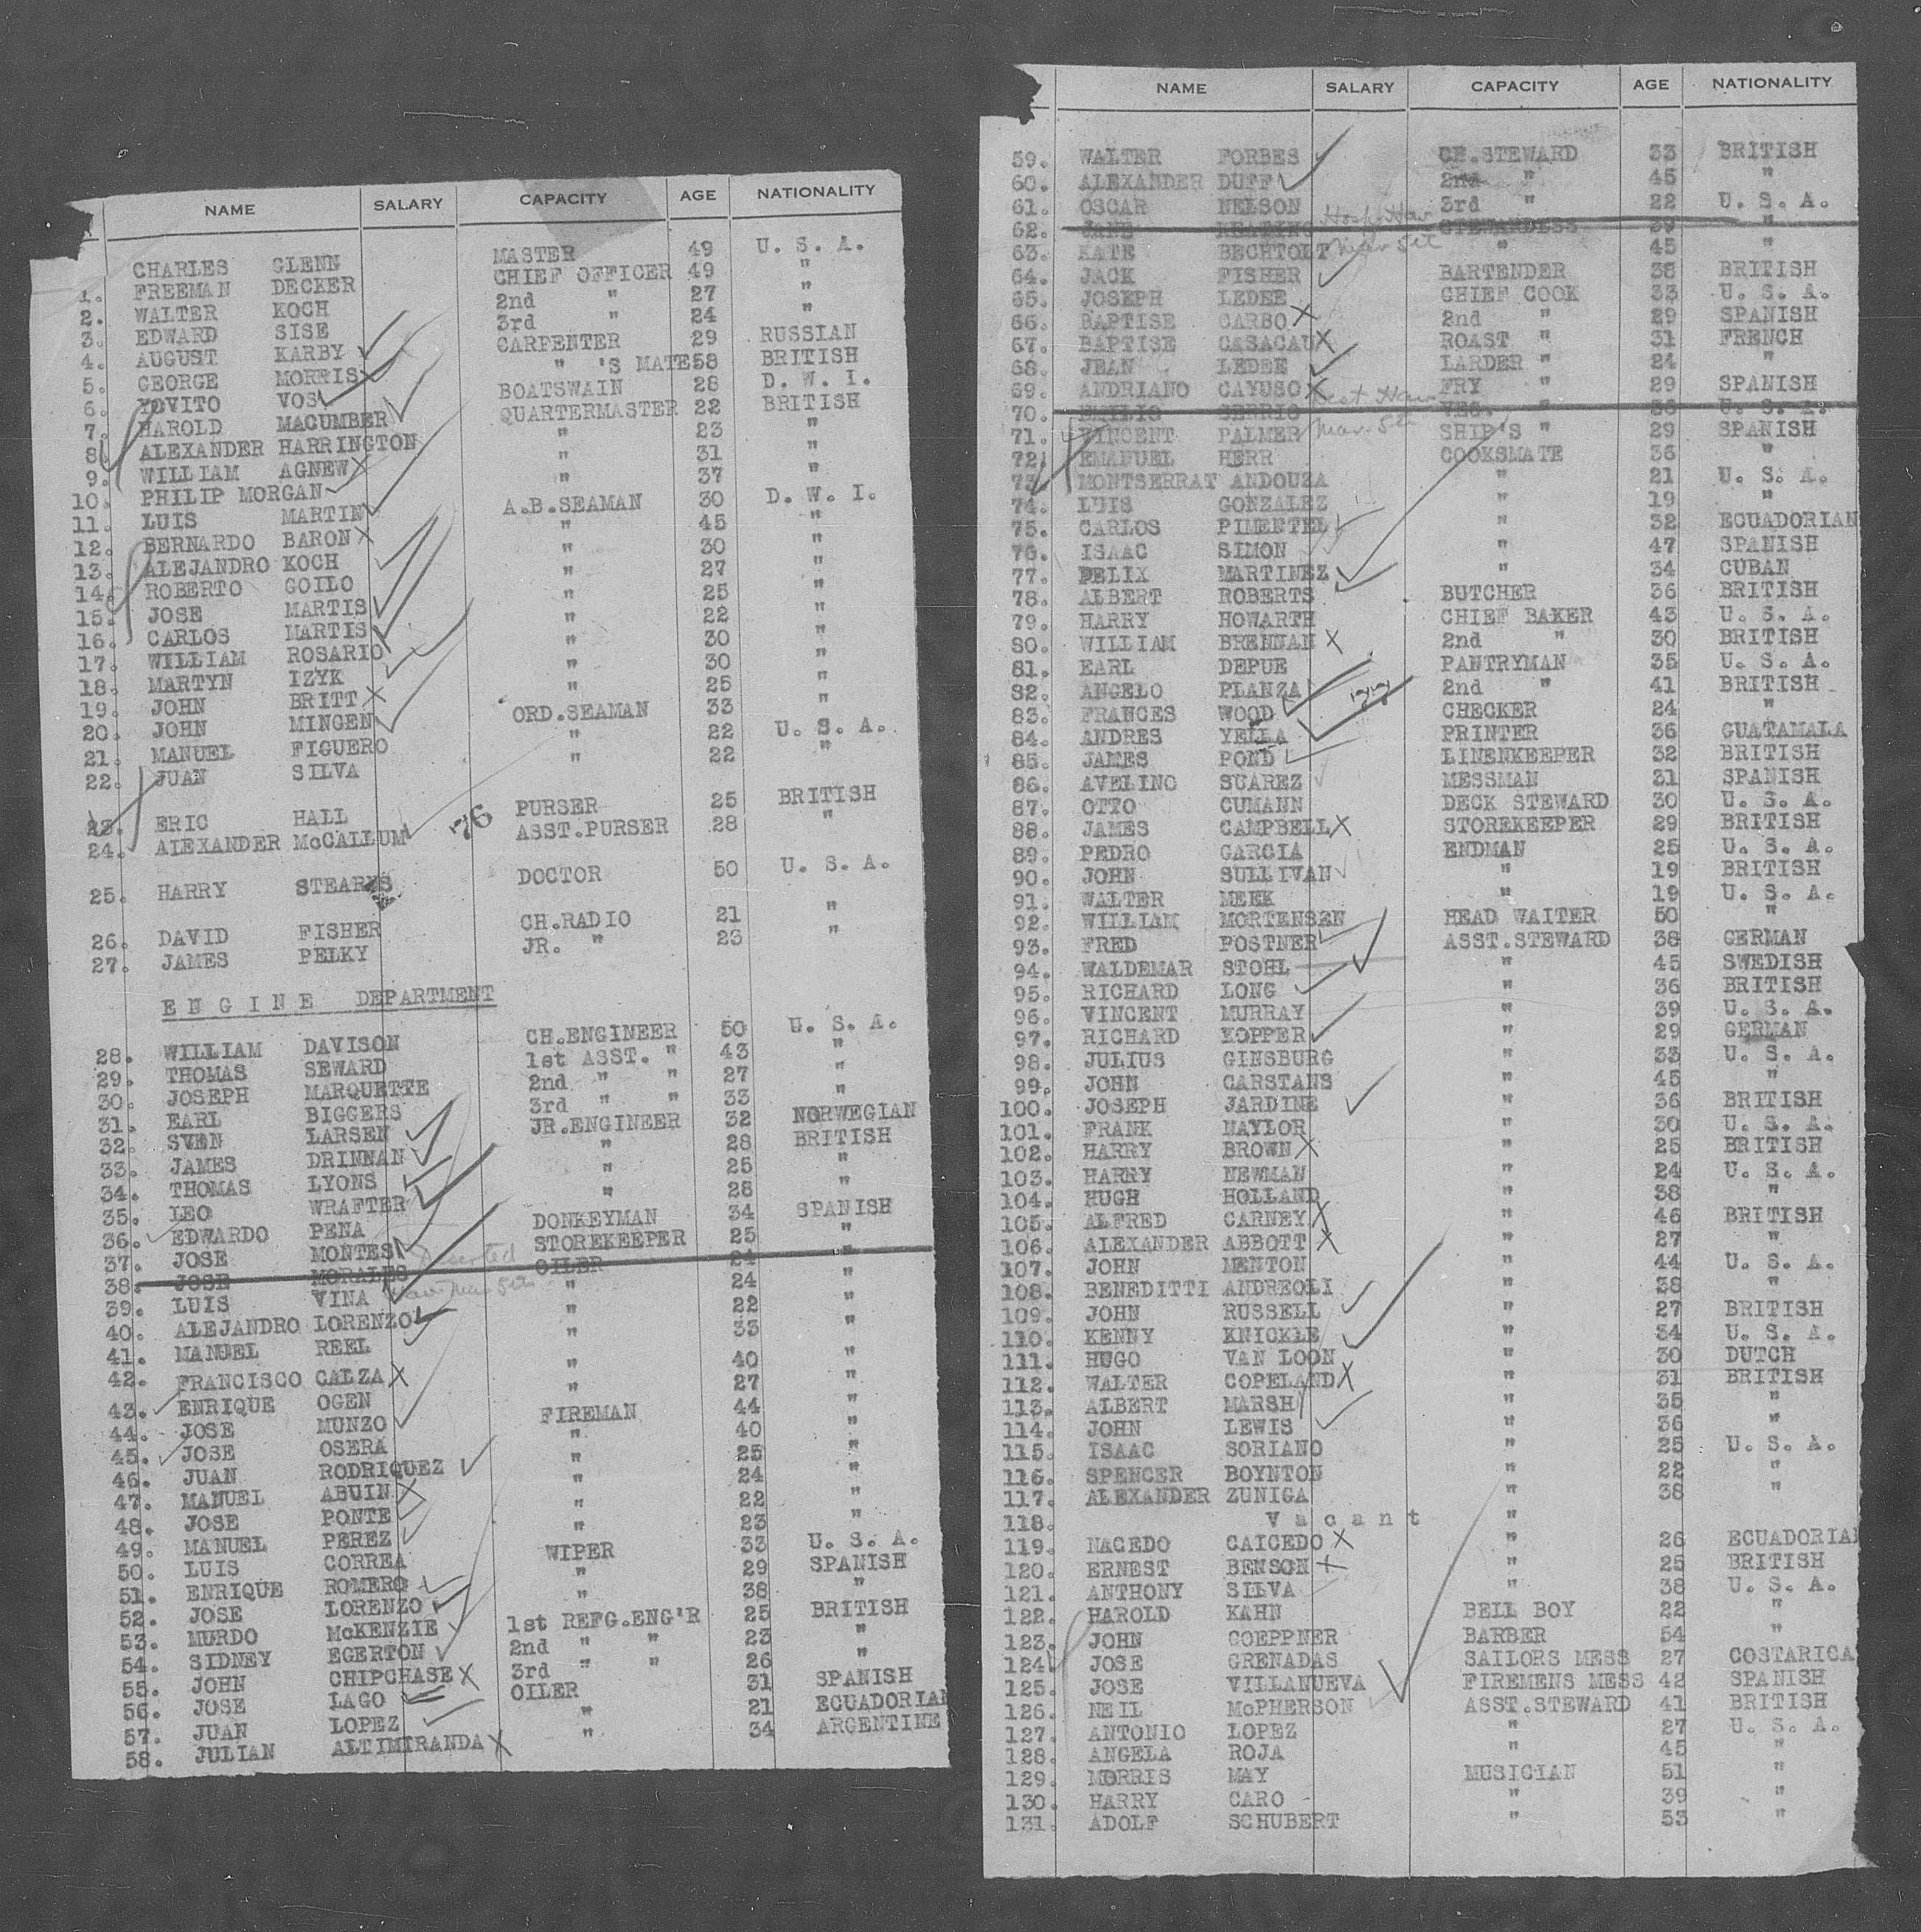 NAME SALARY CAPACITY AGE NATIONALITY
CHARLES GLENN MASTER 49 U. S. A.
1. FREEMAN DECKER CHIEF OFFICER 49 "
2. WALTER KOCH 2nd " 27 "
3. EDWARD SISE 3rd " 24 "
4. AUGUST KARBY CARPENTER 29 RUSSIAN
5. GEORGE MORRIS " 'S MATE 58 BRITISH
6. YOVITO VOS BOATSWAIN 28 D. W. I.
7. HAROLD MACUMBER QUARTERMASTER 22 BRITISH
8. ALEXANDER HARRINGTON " 23 "
9. WILLIAM AGNEW " 31 "
10. PHILIP MORGAN " 37 "
11. LUIS MARTIN A.B.SEAMAN 30 D. W. I.
12. BERNARDO BARON " 45 "
13. ALEJANDRO KOCH " 30 "
14. ROBERTO GOILO " 27 "
15. JOSE MARTIS " 25 "
16. CARLOS MARTIS " 22 "
17. WILLIAM ROSARIO " 30 "
18. MARTYN IZYK " 30 "
19. JOHN BRITT " 25 "
20. JOHN MINGEN ORD.SEAMAN 33 "
21. MANUEL FIGUERO " 22 U. S. A.
22. JUAN SILVA " 22 "
23. ERIC HALL PURSER 25 BRITISH
24. ALEXANDER McCALLUM 76 ASST.PURSER 28 "
25. HARRY STEARNS DOCTOR 50 U. S. A.
26. DAVID FISHER CH.RADIO 21 "
27. JAMES PELKY JR. " 23 "
ENGINE DEPARTMENT
28. WILLIAM DAVISON CH.ENGINEER 50 U. S. A.
29. THOMAS SEWARD 1st ASST. " 43 "
30. JOSEPH MARQUETTE 2nd " " 27 "
31. EARL BIGGERS 3rd " " 33 "
32. SVEN LARSEN JR.ENGINEER 32 NORWEGIAN
33. JAMES DRINNAN " 28 BRITISH
34. THOMAS LYONS " 25 "
35. LEO WRAFTER " 28 "
36. EDWARDO PENA DONKEYMAN 34 SPANISH
37. JOSE MONTES STOREKEEPER 25 "
Deserted
38. JOSE MORALES OILER 24 "
Hav. Mar. 5th
39. LUIS VINA " 24 "
40. ALEJANDRO LORENZO " 22 "
41. MANUEL REEL " 33 "
42. FRANCISCO CALZA " 40 "
43. ENRIQUE OGEN " 27 "
44. JOSE MUNZO FIREMAN 44 "
45. JOSE OSERA " 40 "
46. JUAN RODRIQUEZ " 25 "
47. MANUEL ABUIN " 24 "
48. JOSE PONTE " 22 "
49. MANUEL PEREZ " 23 "
50. LUIS CORREA WIPER 33 U. S. A.
51. ENRIQUE ROMERO " 29 SPANISH
52. JOSE LORENZO " 38 "
53. MURDO McKENZIE 1st REFG.ENG'R 25 BRITISH
54. SIDNEY EGERTON 2nd " " 23 "
55. JOHN CHIPCHASE 3rd " " 26 "
56. JOSE LAGO OILER 31 SPANISH
57. JUAN LOPEZ " 21 ECUADORIAN
58. JULIAN ALTIMIRANDA " 34 ARGENTINE
NAME SALARY CAPACITY AGE NATIONALITY
59. WALTER FORBES CH.STEWARD 33 BRITISH
60. ALEXANDER DUFF 2nd " 45 "
61. OSCAR NELSON 3rd " 22 U. S. A.
Hosp. Hav
62. JANE KEATING STEWARDESS 39 "
Mar 5th
63. KATE BECHTOLT " 45 "
64. JACK FISHER BARTENDER 38 BRITISH
65. JOSEPH LEDEE CHIEF COOK 33 U. S. A.
66. BAPTISE CARBO 2nd " 29 SPANISH
67. BAPTISE CASACAU ROAST " 31 FRENCH
68. JEAN LEDEE LARDER " 24 "
69. ANDRIANO CAYUSO FRY " 29 SPANISH
Hav
70. EMILIO VEG. " 36 U. S. A.
Mar. 5th
71. VINCENT PALMER SHIP'S " 29 SPANISH
72. EMANUEL HERR COOKSMATE 36 "
73. MONTSERRAT ANDOUZA " 21 U. S. A.
74. LUIS GONZALEZ " 19 "
75. CARLOS PIMENTEL " 32 ECUADORIAN
76. ISAAC SIMON " 47 SPANISH
77. FELIX MARTINEZ " 34 CUBAN
78. ALBERT ROBERTS BUTCHER 36 BRITISH
79. HARRY HOWARTH CHIEF BAKER 43 U. S. A.
80. WILLIAM BRENNAN 2nd " 30 BRITISH
81. EARL DEPUE PANTRYMAN 35 U. S. A.
82. ANGELO PLANZA 77 2nd " 41 BRITISH
83. FRANCES WOOD CHECKER 24 "
84. ANDRES YELLA PRINTER 36 GUATAMALA
85. JAMES POND LINENKEEPER 32 BRITISH
86. AVELINO SUAREZ MESSMAN 31 SPANISH
87. OTTO CUMANN DECK STEWARD 30 U. S. A.
88. JAMES CAMPBELL STOREKEEPER 29 BRITISH
89. PEDRO GARCIA ENDMAN 25 U. S. A.
90. JOHN SULLIVAN " 19 BRITISH
91. WALTER MEEK " 19 U. S. A.
92. WILLIAM MORTENSEN HEAD WAITER 50 "
93. FRED POSTNER ASST.STEWARD 38 GERMAN
94. WALDEMAR STOHL " 45 SWEDISH
95. RICHARD LONG " 36 BRITISH
96. VINCENT MURRAY " 39 U. S. A.
97. RICHARD KOPPER " 29 GERMAN
98. JULIUS GINSBURG " 33 U. S. A.
99. JOHN CARSTANS " 45 "
100. JOSEPH JARDINE " 36 BRITISH
101. FRANK NAYLOR " 30 U. S. A.
102. HARRY BROWN " 25 BRITISH
103. HARRY NEWMAN " 24 U. S. A.
104. HUGH HOLLAND " 38 "
105. ALFRED CARNEY " 46 BRITISH
106. ALEXANDER ABBOTT " 27 "
107. JOHN MENTON " 44 U. S. A.
108. BENEDITTI ANDREOLI " 38 "
109. JOHN RUSSELL " 27 BRITISH
110. KENNY KNICKLE " 34 U. S. A.
111. HUGO VAN LOON " 30 DUTCH
112. WALTER COPELAND " 31 BRITISH
113. ALBERT MARSH " 35 "
114. JOHN LEWIS " 36 "
115. ISAAC SORIANO " 25 U. S. A.
116. SPENCER BOYNTON " 22 "
117. ALEXANDER ZUNIGA " 38 "
118. Vacant "
119. NACEDO CAICEDO " 26 ECUADORIAN
120. ERNEST BENSON " 25 BRITISH
121. ANTHONY SILVA " 38 U. S. A.
122. HAROLD KAHN BELL BOY 22 "
123. JOHN GOEPPNER BARBER 54 "
124. JOSE GRENADAS SAILORS MESS 27 COSTARICA
125. JOSE VILLANUEVA FIREMENS MESS 42 SPANISH
126. NEIL McPHERSON ASST.STEWARD 41 BRITISH
127. ANTONIO LOPEZ " 27 U. S. A.
128. ANGELA ROJA " 45 "
129. MORRIS MAY MUSICIAN 51 "
130. HARRY CARO " 39 "
131. ADOLF SCHUBERT " 53 "